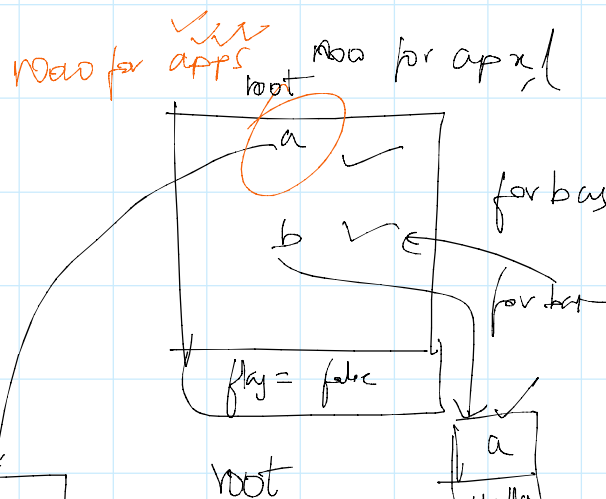 now for apps
now for apxl
root
a
for bas
b
for bat
flag = false
a
root